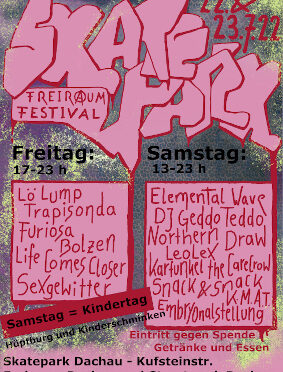 22 &
23.7.22
SKATE
PARK
FREIRAUM
FESTIVAL
Freitag:
17-23 h
Samstag:
13-23 h
Lö Lump
Trapisonda
Furiosa
Bolzen
Life Comes Closer
Sexgewitter
Elemental Wave
DJ Geddo Teddo
Northern Draw
LeoLex
Karfunkel the Carecrow
Snack & Snack
K.M.A.T.
Embryonalstellung
Samstag = Kindertag
Hüpfburg und Kinderschminken
Eintritt gegen Spende
Getränke und Essen
Skatepark Dachau - Kufsteinstr.